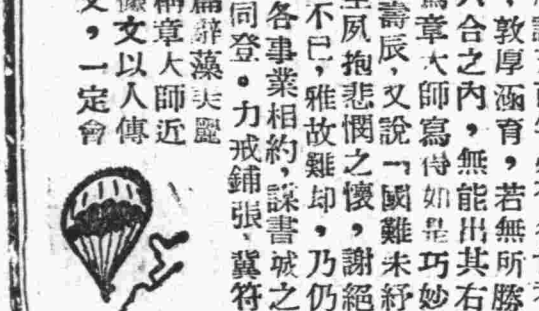 ，敦厚涵育，若無所勝
合之內，無能出其右
章大師寫得如是巧妙
壽辰，又說「國難未紓
夙抱悲憫之懷，謝絕
不已，雅故難却，乃仍
各事業相約，書城之
同登。力戒鋪張，冀符
篇辭藻美麗
稱章大師近
文以人傳
，一定會